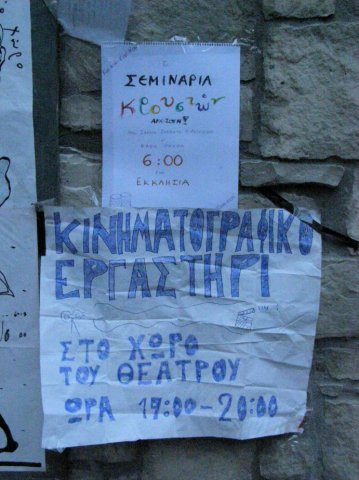 ΧΩΡΟ
ΣΕΜΙΝΑΡΙΑ
ΚΡΟΥΣΤΩΝ
6:00
ΕΚΚΛΗΣΙΑ
ΚΙΝΗΜΑΤΟΓΡΑΦΙΚΟ
ΕΡΓΑΣΤΗΡΙ
ΣΤΟ ΧΩΡΟ
ΤΟΥ ΘΕΑΤΡΟΥ
ΩΡΑ 17:00-20:00